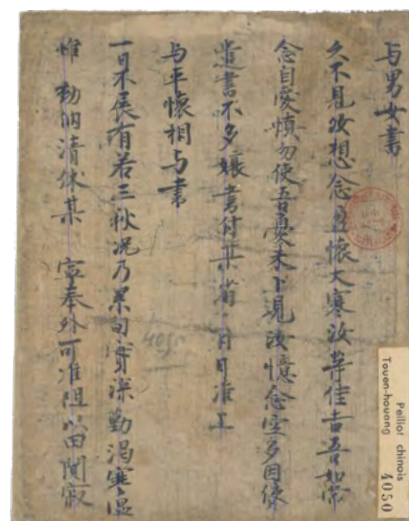 与男女書
久不見汝想念盈懷大寒汝等佳吉吾如常
念自愛慎勿使吾憂未卜見汝憶念空多因使
遣書不多孃書付某省 月日准上
与平懷相与書
一日不展有若三秋況乃累旬實深勤渴寒溫
惟 動納清休某 寧奉外可准阻以由聞寂
Pelliot chinois
Touen-houang
4050